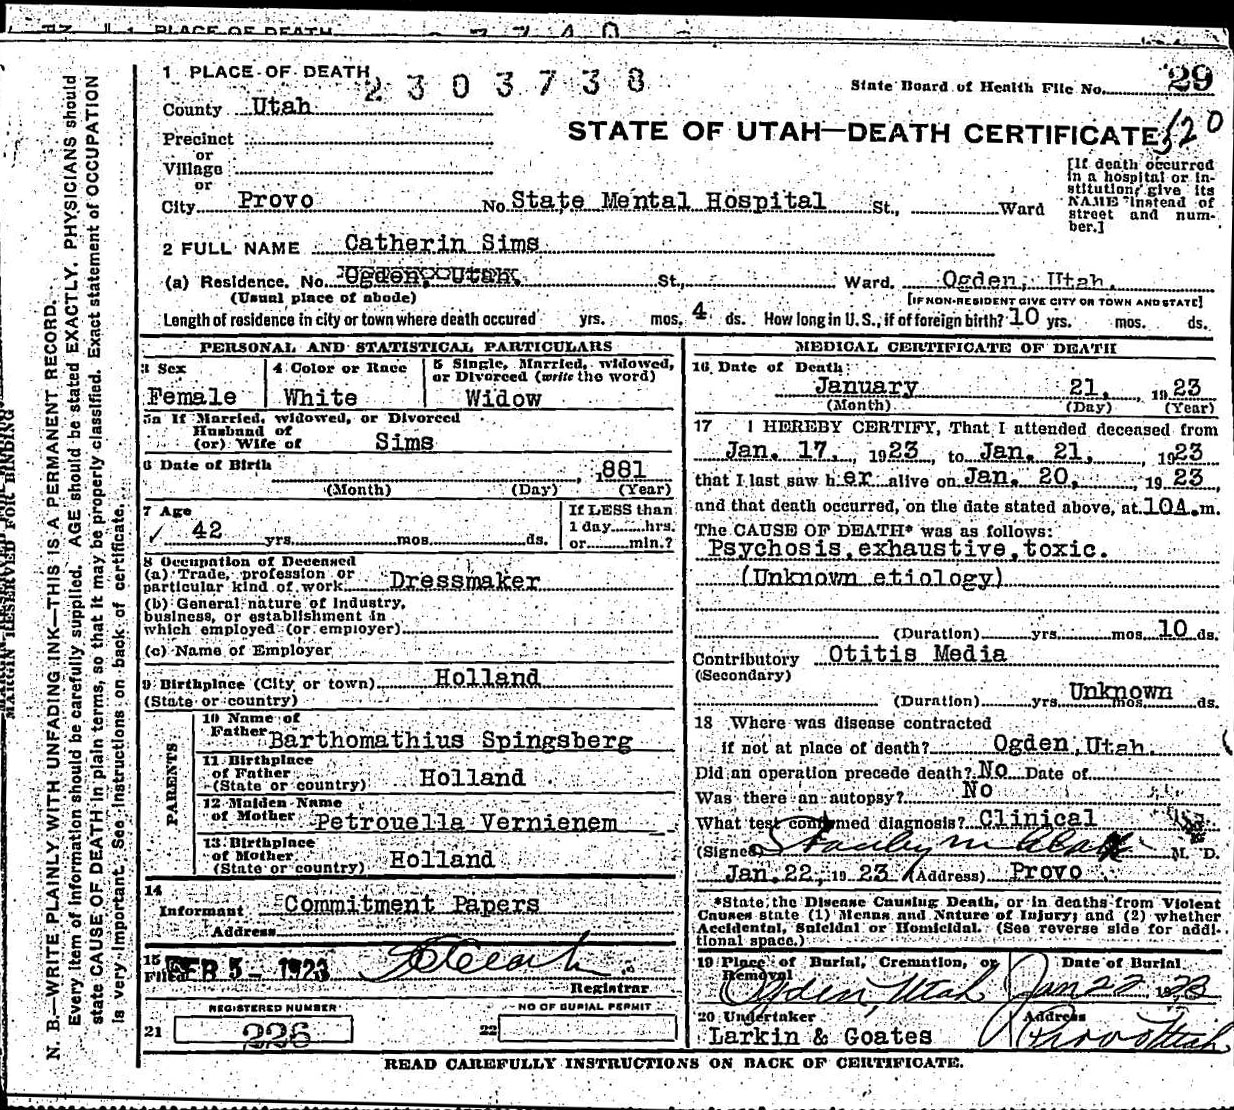 1 PLACE OF DEATH
2303738
State Board of Health File No. 29
County Utah
STATE OF UTAH—DEATH CERTIFICATE 520
Precinct
or
Village
or
City Provo No. State Mental Hospital St., Ward
[If death occurred in a hospital or institution, give its NAME instead of street and number.]
2 FULL NAME Catherin Sims
(a) Residence. No. Ogden, Utah. St., Ward. Ogden, Utah.
(Usual place of abode) [IF NON-RESIDENT GIVE CITY OR TOWN AND STATE]
Length of residence in city or town where death occured yrs. mos. 4 ds. How long in U. S., if of foreign birth? 10 yrs. mos. ds.
PERSONAL AND STATISTICAL PARTICULARS
3 Sex
Female
4 Color or Race
White
5 Single, Married, widowed, or Divorced (write the word)
Widow
5a If Married, widowed, or Divorced
Husband of
(or) Wife of Sims
6 Date of Birth , 1881
(Month) (Day) (Year)
7 Age
42 yrs. mos. ds.
If LESS than
1 day hrs.
or min.?
8 Occupation of Deceased
(a) Trade, profession or
particular kind of work Dressmaker
(b) General nature of Industry,
business, or establishment in
which employed (or employer)
(c) Name of Employer
9 Birthplace (City or town) Holland
(State or country)
PARENTS
10 Name of
Father Barthomathius Spingsberg
11 Birthplace
of Father Holland
(State or country)
12 Maiden Name
of Mother Petrouella Vernienem
13 Birthplace
of Mother Holland
(State or country)
14
Informant Commitment Papers
Address
15
Filed FEB 5 - 1923
Registrar
REGISTERED NUMBER
21 226
NO OF BURIAL PERMIT
22
MEDICAL CERTIFICATE OF DEATH
16 Date of Death:
January 21, 1923
(Month) (Day) (Year)
17 I HEREBY CERTIFY, That I attended deceased from
Jan. 17, 1923, to Jan. 21, 1923
that I last saw her alive on Jan. 20, 1923,
and that death occurred, on the date stated above, at 10A.m.
The CAUSE OF DEATH* was as follows:
Psychosis, exhaustive, toxic.
(Unknown etiology)
(Duration) yrs. mos. 10 ds.
Contributory Otitis Media
(Secondary)
(Duration) yrs. Unknown mos. ds.
18 Where was disease contracted
if not at place of death? Ogden, Utah.
Did an operation precede death? No Date of
Was there an autopsy? No
What test confirmed diagnosis? Clinical
(Signed) Stanley M. M. D.
Jan. 22, 1923 (Address) Provo
*State, the Disease Causing Death, or in deaths from Violent
Causes state (1) Means and Nature of Injury; and (2) whether
Accidental, Suicidal or Homicidal. (See reverse side for addi-
tional space.)
19 Place of Burial, Cremation, or
Removal
Ogden, Utah
Date of Burial
Jan 22 1923
20 Undertaker
Larkin & Goates
Address
Provo Utah
READ CAREFULLY INSTRUCTIONS ON BACK OF CERTIFICATE.
MARGIN RESERVED FOR BINDING
N. B.—WRITE PLAINLY, WITH UNFADING INK—THIS IS A PERMANENT RECORD.
Every item of information should be carefully supplied. AGE should be stated EXACTLY. PHYSICIANS should
state CAUSE OF DEATH in plain terms, so that it may be properly classified. Exact statement of OCCUPATION
is very important. See instructions on back of certificate.